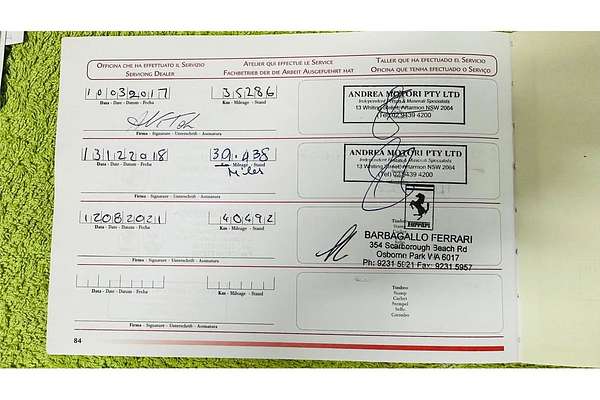 Officina che ha effettuato il Servizio
Atelier qui effectue le Service
Taller que ha efectuado el Servicio
Servicing Dealer
Fachbetrieb der die Arbeit Ausgefuehrt hat
Oficina que tenha efectuado o Serviço
10032017
35286
Data - Date - Datum - Fecha
Km - Mileage - Stand
ANDREA MOTORI PTY LTD
Independent Ferrari & Maserati Specialists
13 Whiting Street, Artarmon NSW 2064
(Tel) 02 9439 4200
Firma - Signature - Unterschrift - Assinatura
13122018
39.938
Data - Date - Datum - Fecha
Km - Mileage - Stand
Miles
ANDREA MOTORI PTY LTD
Independent Ferrari & Maserati Specialists
13 Whiting Street, Artarmon NSW 2064
(Tel) 02 9439 4200
Firma - Signature - Unterschrift - Assinatura
12082021
40492
Data - Date - Datum - Fecha
Km - Mileage - Stand
Timbro
Stamp
Ferrari
BARBAGALLO FERRARI
354 Scarborough Beach Rd
Osborne Park WA 6017
Ph: 9231 5921 Fax: 9231 5957
Firma - Signature - Unterschrift - Assinatura
Data - Date - Datum - Fecha
Km - Mileage - Stand
Timbro
Stamp
Cachet
Stempel
Sello
Carimbo
Firma - Signature - Unterschrift - Assinatura
84